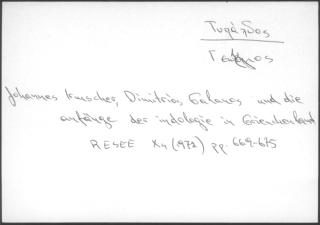 Τυπάλδος
Γαλανός
Johannes Irmscher, Dimitrios Galanos und die
anfänge der indologie in Griechenland
RESEE X4 (1972) pp. 669-675